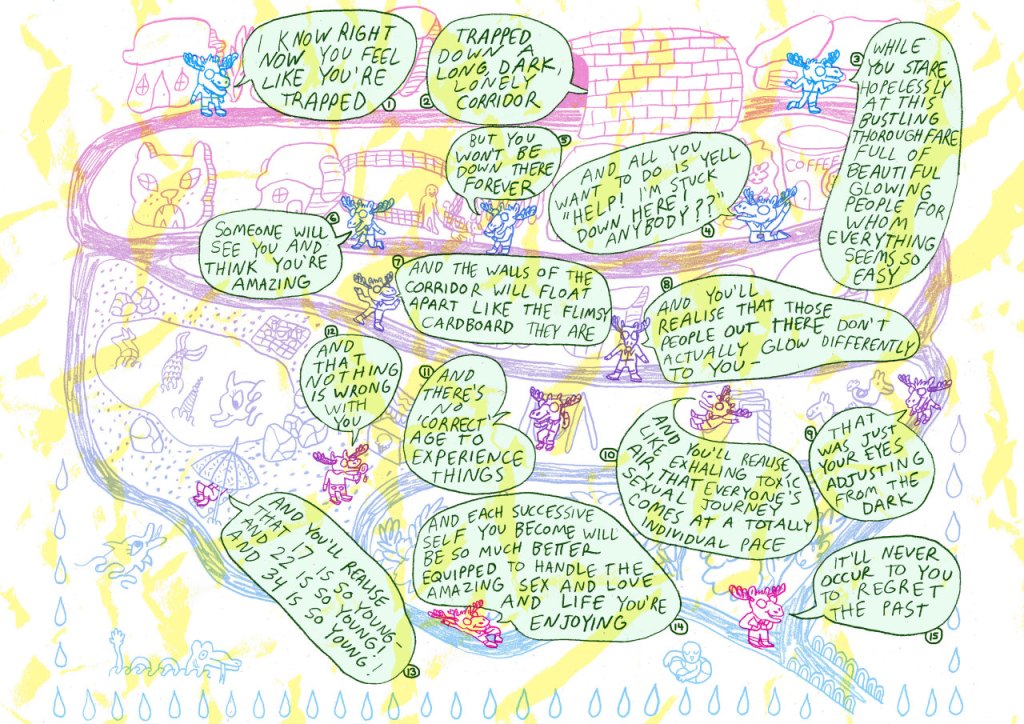 I KNOW RIGHT
NOW YOU FEEL
LIKE YOU'RE
TRAPPED
1
2
TRAPPED
DOWN A
LONG, DARK,
LONELY
CORRIDOR
3
WHILE
YOU STARE
HOPELESSLY
AT THIS
BUSTLING
THOROUGHFARE
FULL OF
BEAUTIFUL
GLOWING
PEOPLE FOR
WHOM
EVERYTHING
SEEMS SO
EASY
AND ALL YOU
WANT TO DO IS YELL
"HELP! I'M STUCK
DOWN HERE!
ANYBODY??"
4
COFFEE
5
BUT YOU
WON'T BE
DOWN THERE
FOREVER
6
SOMEONE WILL
SEE YOU AND
THINK YOU'RE
AMAZING
7
AND THE WALLS OF THE
CORRIDOR WILL FLOAT
APART LIKE THE FLIMSY
CARDBOARD THEY ARE
8
AND YOU'LL
REALISE THAT THOSE
PEOPLE OUT THERE DON'T
ACTUALLY GLOW DIFFERENTLY
TO YOU-
9
THAT
WAS JUST
YOUR EYES
ADJUSTING
FROM THE
DARK
10
AND YOU'LL REALISE
LIKE EXHALING TOXIC
AIR THAT EVERYONE'S
SEXUAL JOURNEY
COMES AT A TOTALLY
INDIVIDUAL PACE
11
AND
THERE'S
NO
'CORRECT'
AGE TO
EXPERIENCE
THINGS
12
AND
THAT
NOTHING
IS WRONG
WITH
YOU
AND YOU'LL REALISE
THAT 17 IS SO YOUNG-
AND 22 IS SO YOUNG!
AND 34 IS SO YOUNG!
13
AND EACH SUCCESSIVE
SELF YOU BECOME WILL
BE SO MUCH BETTER
EQUIPPED TO HANDLE THE
AMAZING SEX AND LOVE
AND LIFE YOU'RE
ENJOYING
14
IT'LL NEVER
OCCUR TO YOU
TO REGRET
THE PAST
15